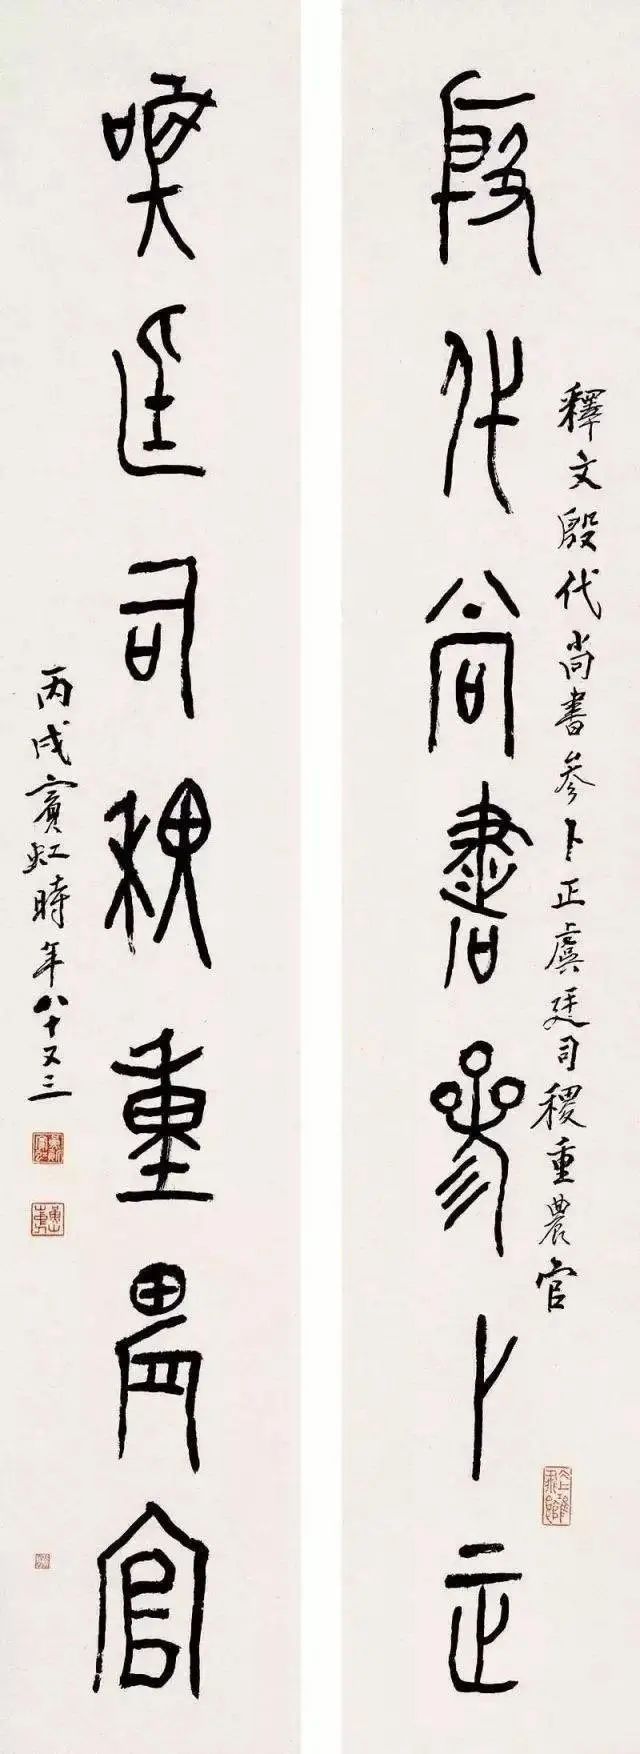 殷代尚書參卜正
釋文殷代尚書參卜正虞廷司稷重農官
虞廷司稷重農官
丙戌賓虹時年八十又三